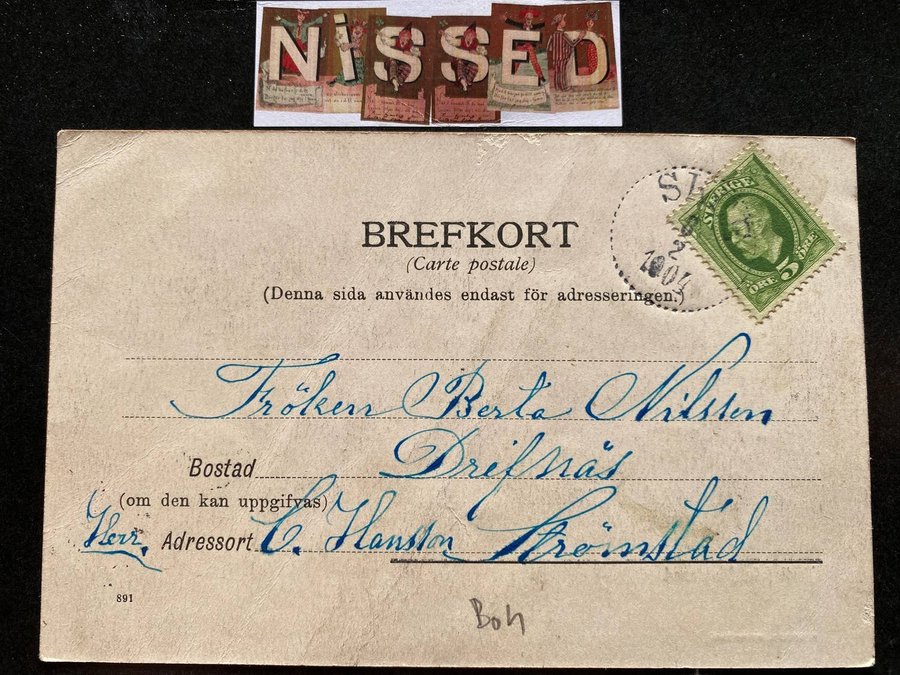 NISSED
BREFKORT
(Carte postale)
(Denna sida användes endast för adresseringen.)
SVERIGE
5
ÖRE ÖRE
2
1904
Fröken Berta Nilsson
Bostad Drifnäs
(om den kan uppgifvas)
Herr. Adressort C. Hansson Strömstad
891
Boh